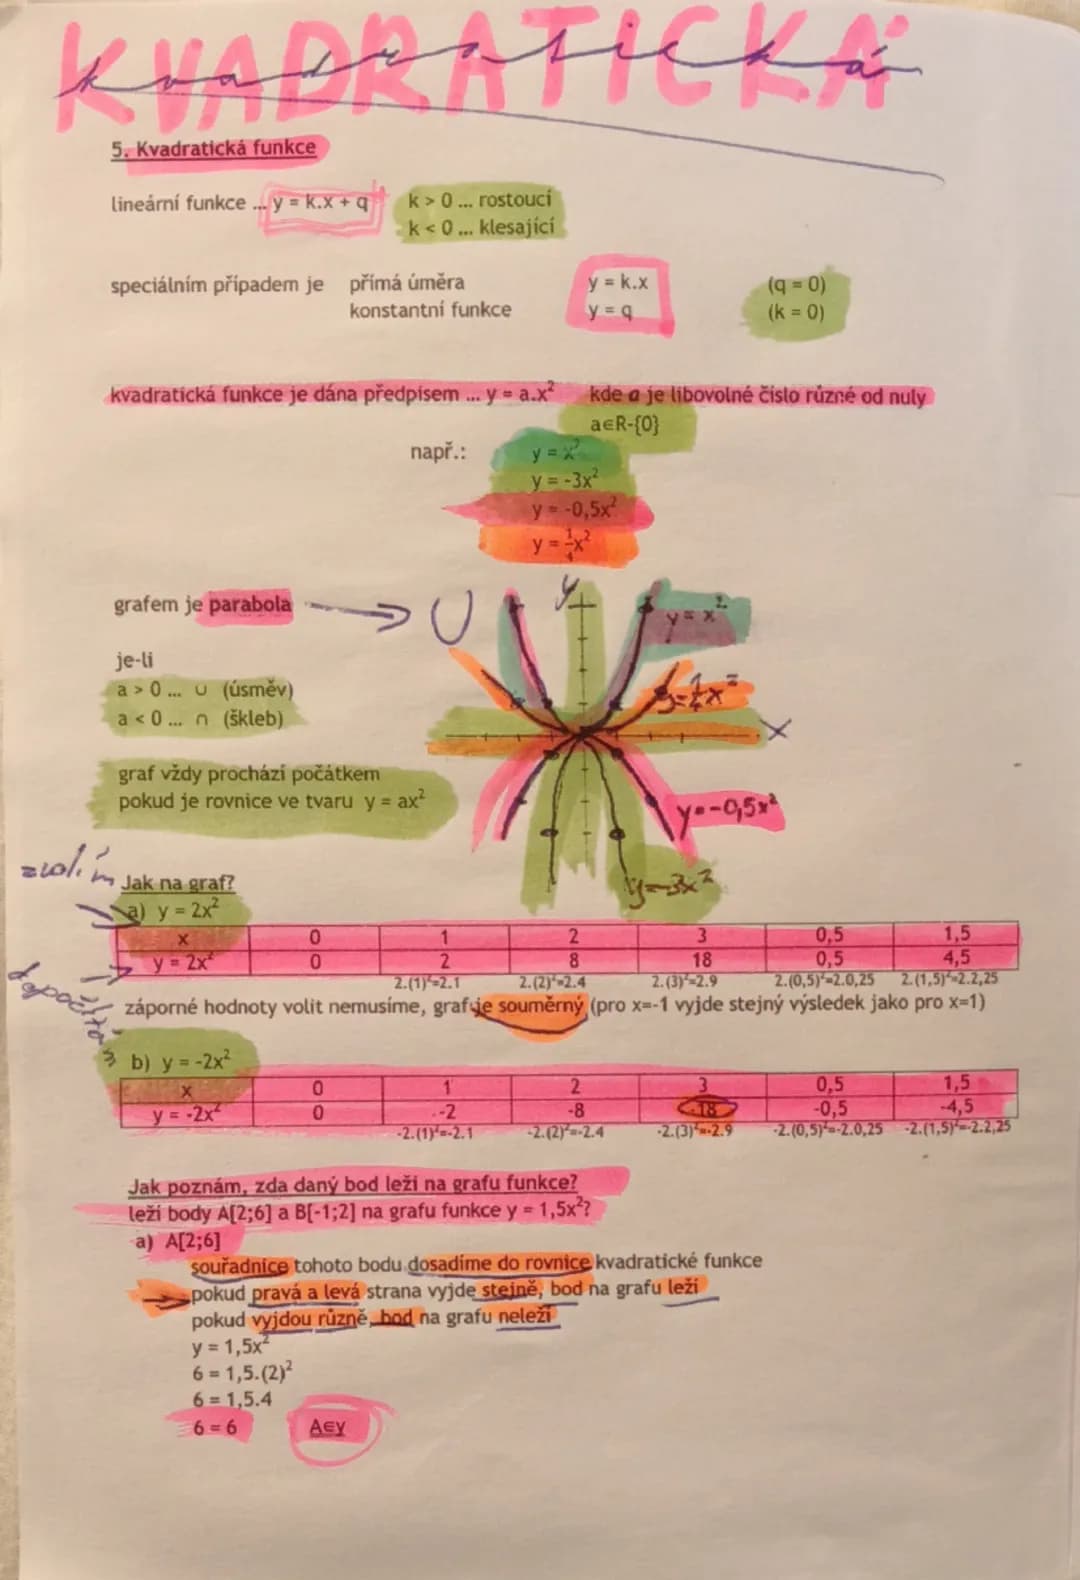 KVADRATICKÁ
kvadratická
5. Kvadratická funkce
lineární funkce ... y = k.x + q k > 0 ... rostoucí
k < 0 ... klesající
speciálním případem je přímá úměra y = k.x (q = 0)
konstantní funkce y = q (k = 0)
kvadratická funkce je dána předpisem ... y = a.x² kde a je libovolné číslo různé od nuly
a∈R-{0}
např.: y = x²
y = -3x²
y = -0,5x²
y = ¼x²
grafem je parabola → U
y
y = x²
je-li
a > 0 ... ∪ (úsměv)
a < 0 ... ∩ (škleb)
y=¼x²
x
graf vždy prochází počátkem
pokud je rovnice ve tvaru y = ax²
y=-0,5x²
y=-3x²
zvolím
Jak na graf?
a) y = 2x²
x 0 1 2 3 0,5 1,5
y = 2x² 0 2 8 18 0,5 4,5
2.(1)²=2.1 2.(2)²=2.4 2.(3)²=2.9 2.(0,5)²=2.0,25 2.(1,5)²=2.2,25
dopočítám
záporné hodnoty volit nemusíme, graf je souměrný (pro x=-1 vyjde stejný výsledek jako pro x=1)
b) y = -2x²
x 0 1 2 3 0,5 1,5
y = -2x² 0 -2 -8 -18 -0,5 -4,5
-2.(1)²=-2.1 -2.(2)²=-2.4 -2.(3)²=-2.9 -2.(0,5)²=-2.0,25 -2.(1,5)²=-2.2,25
Jak poznám, zda daný bod leží na grafu funkce?
leží body A[2;6] a B[-1;2] na grafu funkce y = 1,5x²?
a) A[2;6]
souřadnice tohoto bodu dosadíme do rovnice kvadratické funkce
pokud pravá a levá strana vyjde stejně, bod na grafu leží
pokud vyjdou různě, bod na grafu neleží
y = 1,5x²
6 = 1,5.(2)²
6 = 1,5.4
6 = 6 A∈y